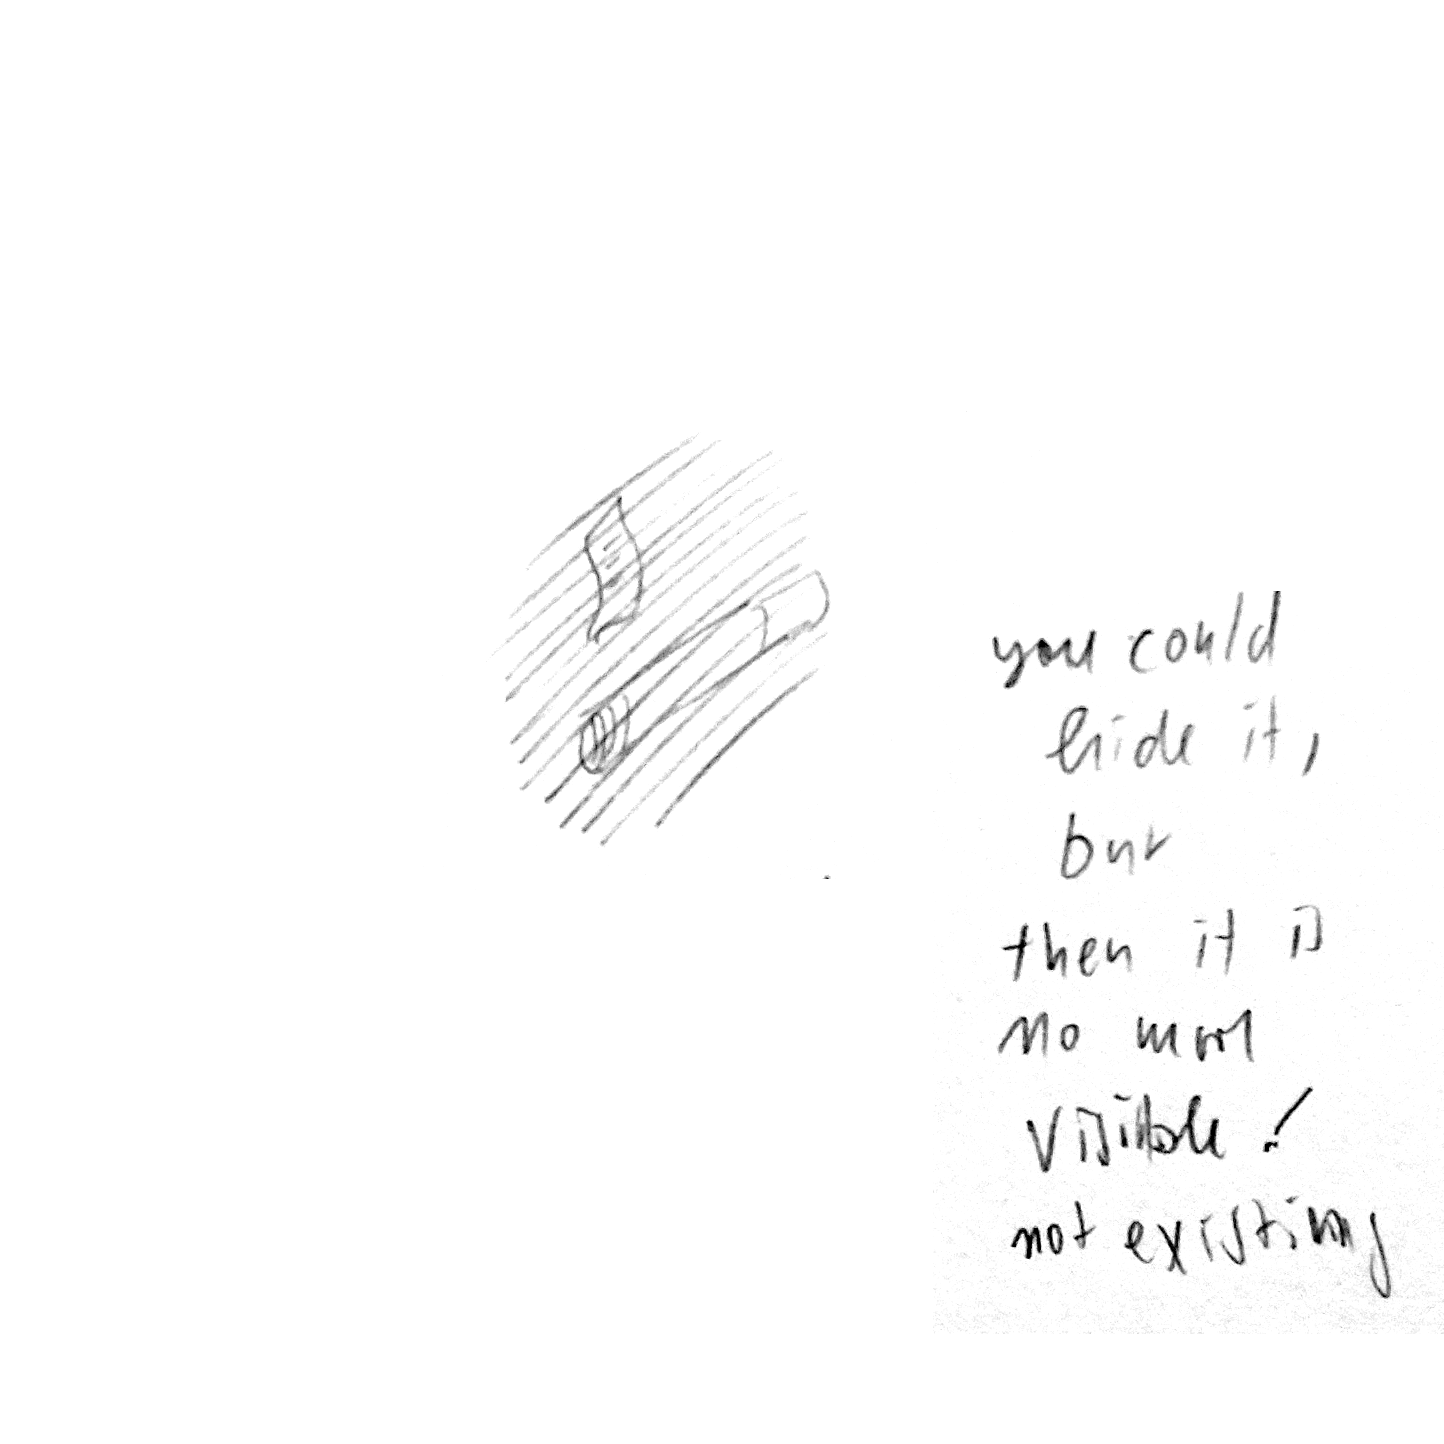 you could
hide it,
but
then it is
no more
visible!
not existing